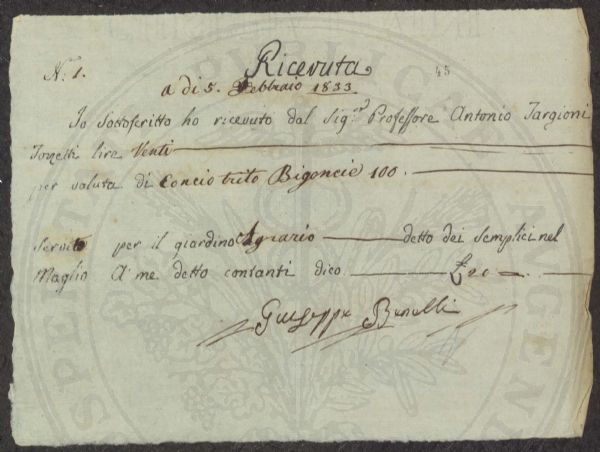 N: 1.
Ricevuta
45
a dì 5. Febbraio 1833
Io Sottoscritto ho ricevuto dal Sig.r Professore Antonio Targioni
Tozzetti lire Venti
per valuta di Concio trito Bigoncie 100.
Servito per il giardino Agrario detto dei Semplici nel
Maglio A me detto contanti dico £ 20 —.
Giuseppe Benelli